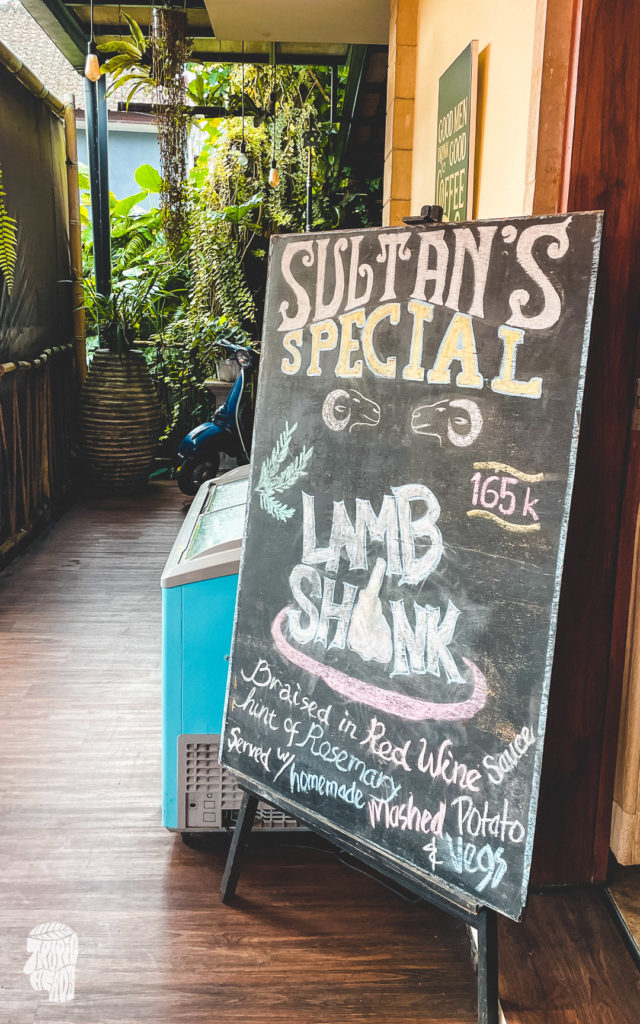 GOOD MEN
GOOD
COFFEE
SULTAN'S
SPECIAL
165 k
LAMB
SHANK
Braised in Red Wine Sauce
hint of Rosemary
Served w/ homemade Mashed Potato
& Vegs